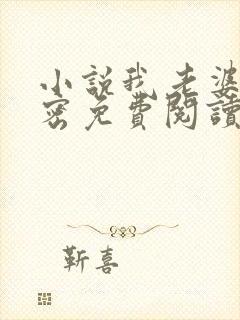 小說我老婆
密免費閱讀
靳喜